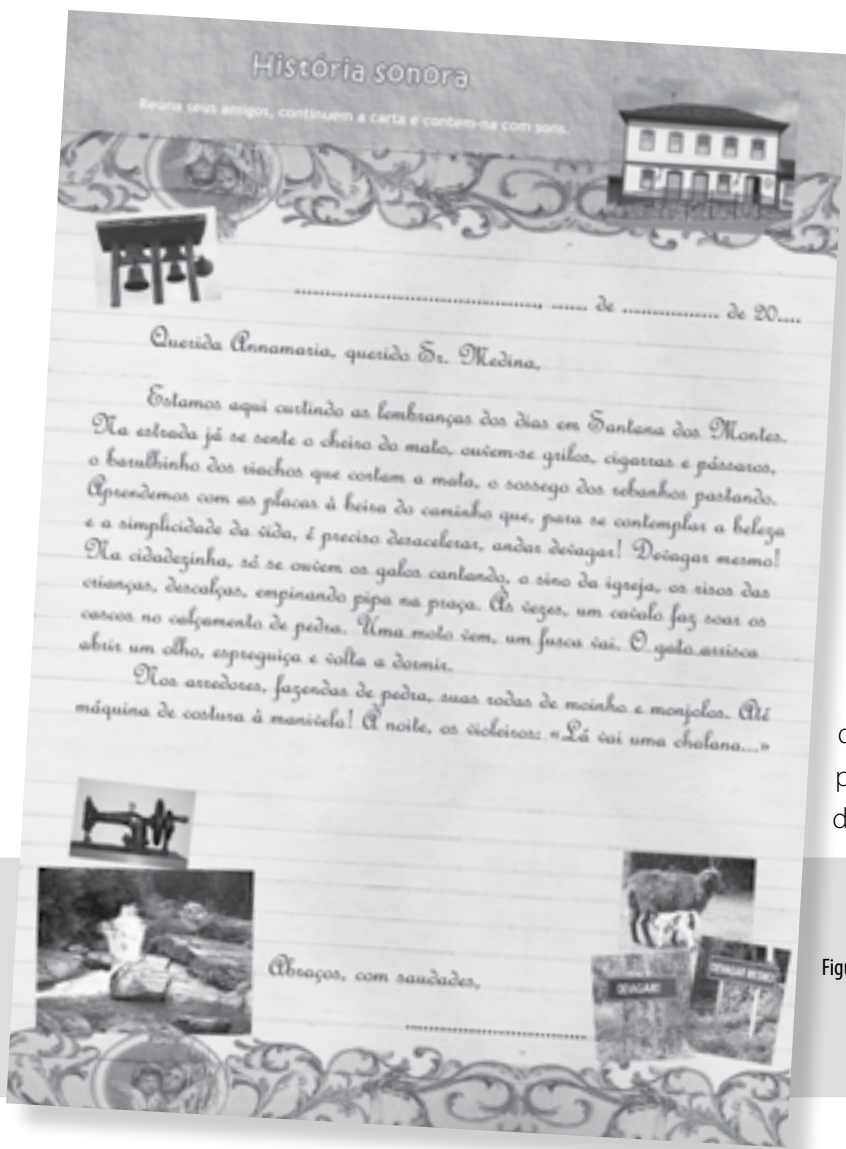 História sonora
Reúna seus amigos, continuem a carta e contem-na com sons.
............................................, ...... de ................. de 20....
Querida Annamaria, querido Sr. Medina,
Estamos aqui curtindo as lembranças dos dias em Santana dos Montes.
Na estrada já se sente o cheiro do mato, ouvem-se grilos, cigarras e pássaros,
o barulhinho dos riachos que cortam a mata, o sossego dos rebanhos pastando.
Aprendemos com as placas à beira do caminho que, para se contemplar a beleza
e a simplicidade da vida, é preciso desacelerar, andar devagar! Devagar mesmo!
Na cidadezinha, só se ouvem os galos cantando, o sino da igreja, os risos das
crianças, descalças, empinando pipa na praça. Às vezes, um cavalo faz soar os
cascos no calçamento de pedra. Uma moto vem, um fusca vai. O gato arrisca
abrir um olho, espreguiça e volta a dormir.
Nos arredores, fazendas de pedra, suas rodas de moinho e monjolos. Até
máquina de costura à manivela! À noite, os violeiros: «Lá vai uma chalana...»
Abraços, com saudades,
................................
DEVAGAR!
DEVAGAR MESMO!
c
p
d
Figu